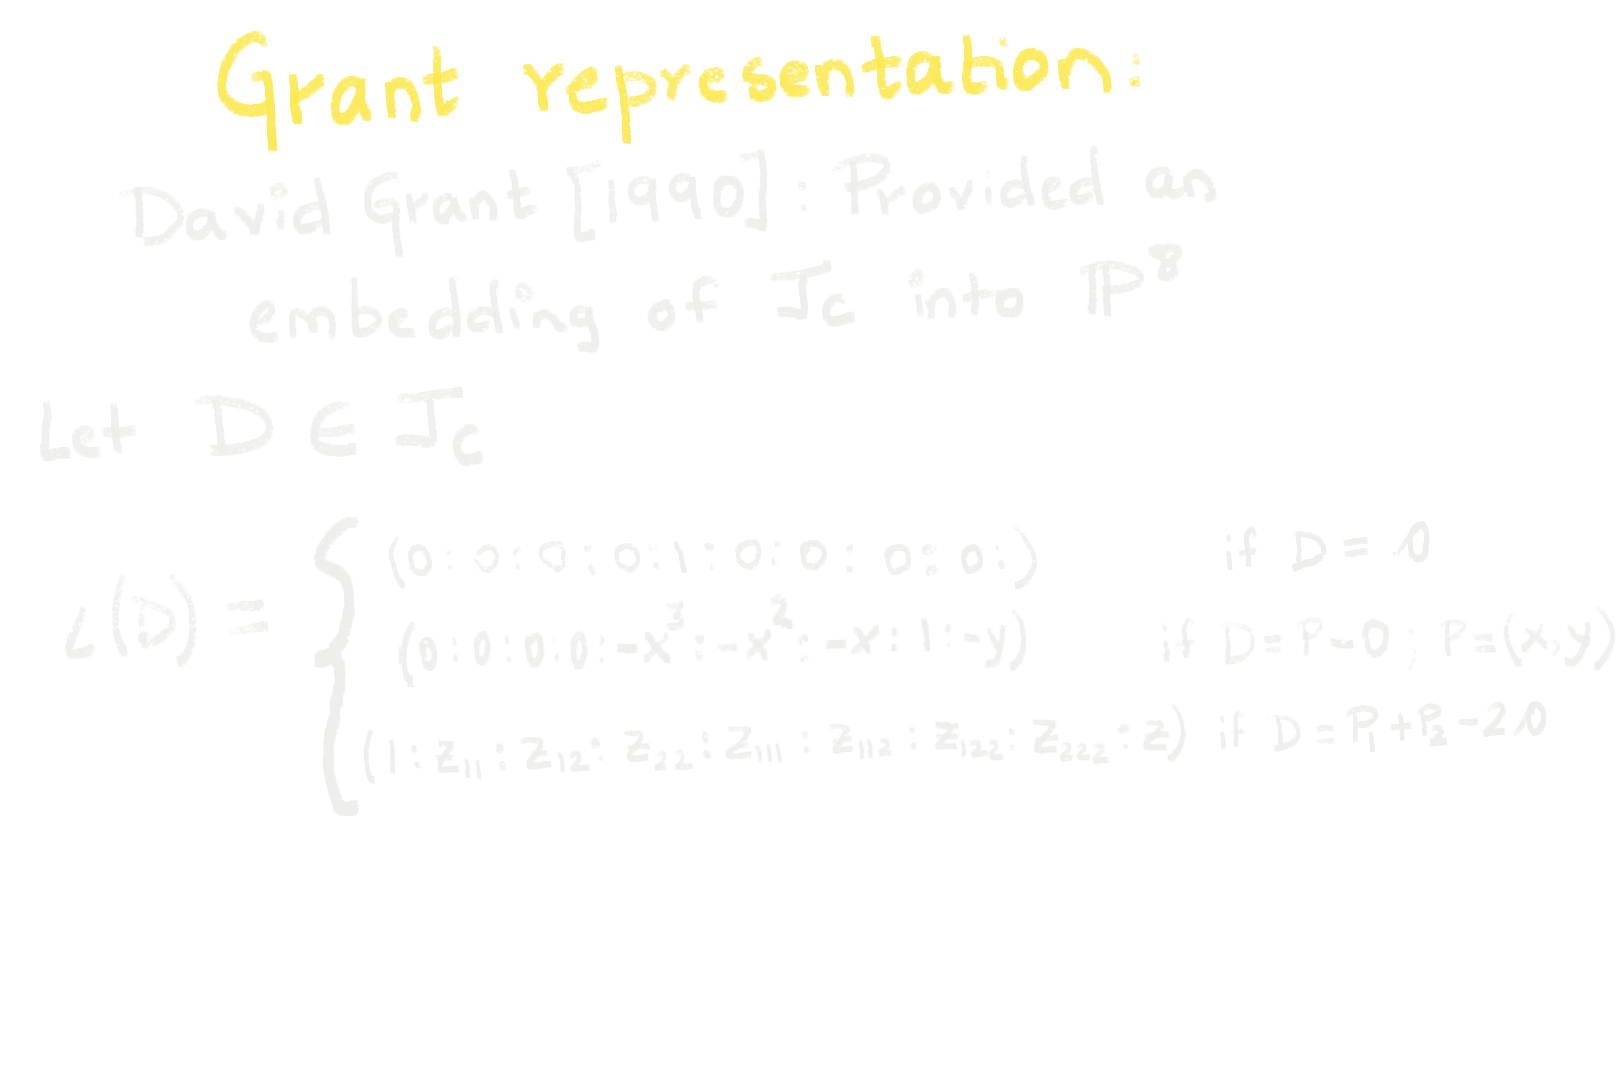 Grant representation:
David Grant [1990]: Provided an
embedding of J_C into ℙ⁸
Let D ∈ J_C
L(D) = {
(0:0:0:0:1:0:0:0:0:) if D = O
(0:0:0:0:-x³:-x²:-x:1:-y) if D = P-O; P=(x,y)
(1:z₁₁:z₁₂:z₂₂:z₁₁₁:z₁₁₂:z₁₂₂:z₂₂₂:z) if D = P₁+P₂-2O